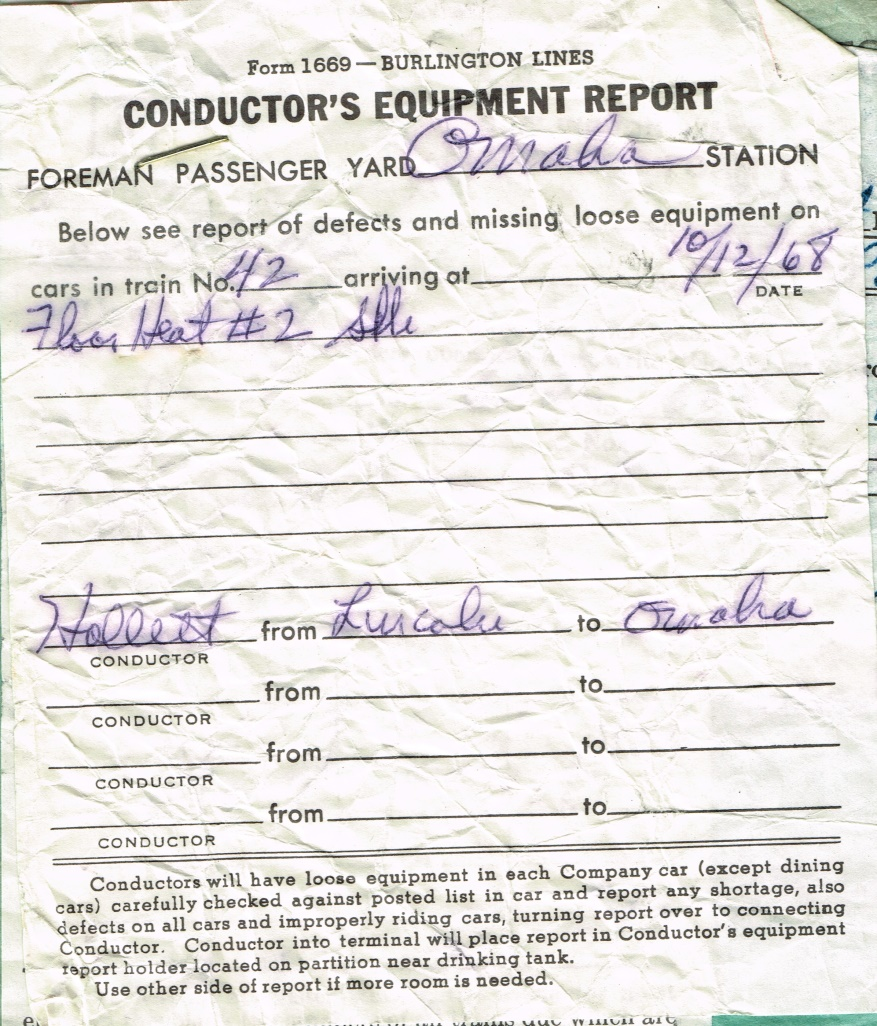 Form 1669 — BURLINGTON LINES
CONDUCTOR'S EQUIPMENT REPORT
FOREMAN PASSENGER YARD Omaha STATION
Below see report of defects and missing loose equipment on
cars in train No. 42 arriving at 10/12/68
DATE
Floor Heat #2
Hallett from Lincoln to Omaha
CONDUCTOR
from to
CONDUCTOR
from to
CONDUCTOR
from to
CONDUCTOR
Conductors will have loose equipment in each Company car (except dining
cars) carefully checked against posted list in car and report any shortage, also
defects on all cars and improperly riding cars, turning report over to connecting
Conductor. Conductor into terminal will place report in Conductor's equipment
report holder located on partition near drinking tank.
Use other side of report if more room is needed.